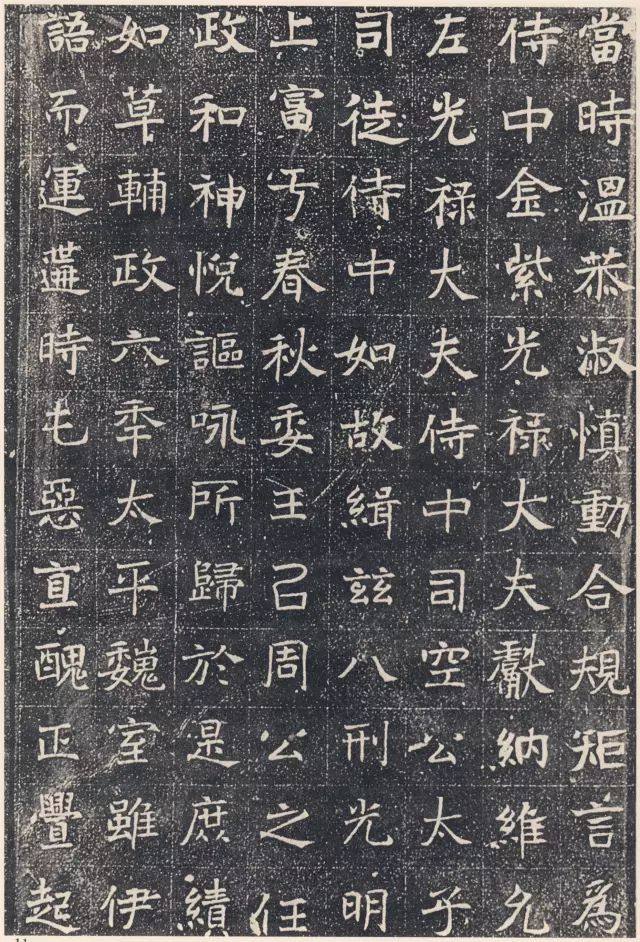 當時溫恭淑慎動合規矩言為
侍中金紫光祿大夫獻納維允
左光祿大夫侍中司空公太乎
司徒侍中如故緝茲八刑光明
上富于春秋委王以周公之任
政和神悅謳咏所歸於是庶績
如草輔政六年太平魏室雖伊
語而運遘時屯惡直醜正舋起